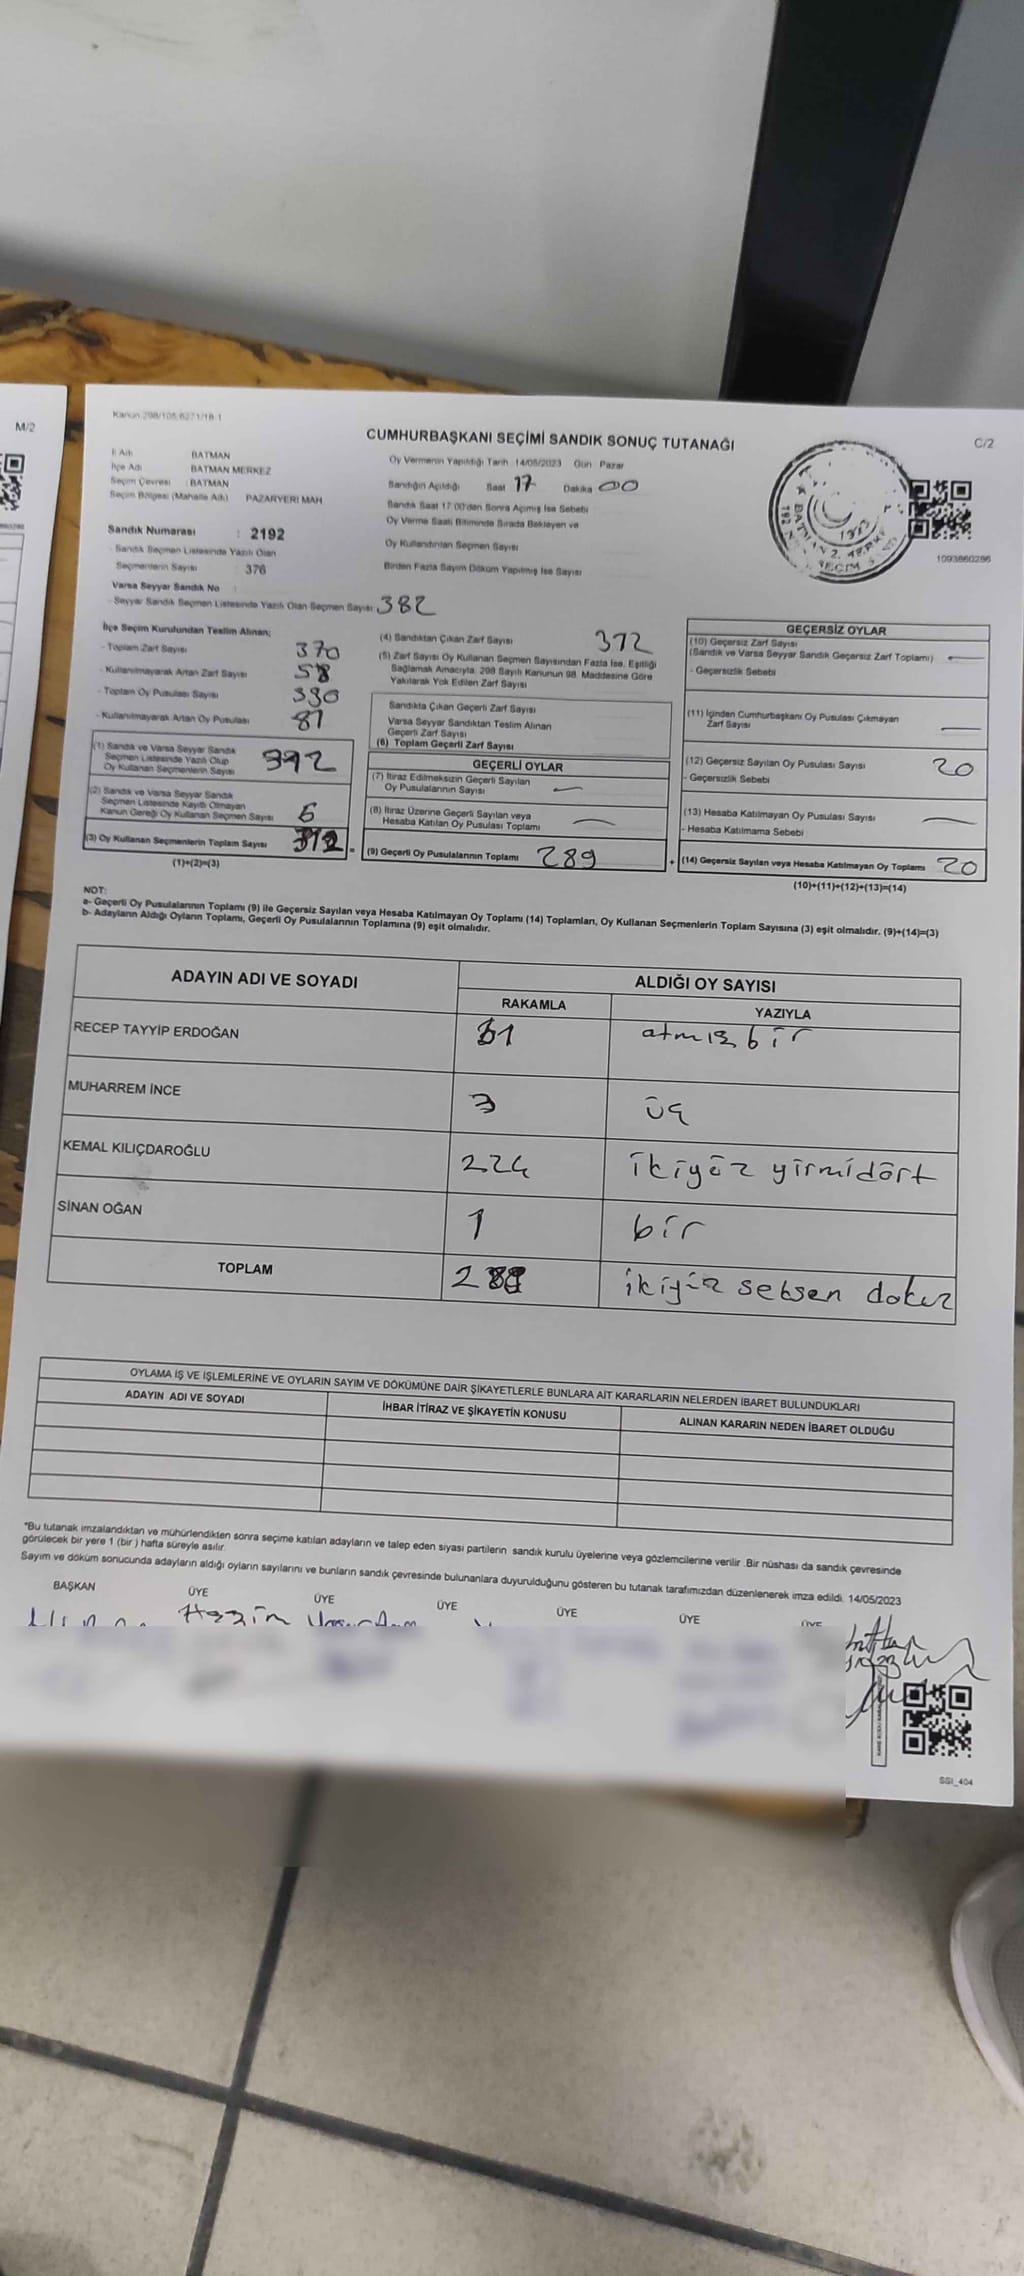 M/2
Kanun 298/105 6271/18-1
CUMHURBAŞKANI SEÇİMİ SANDIK SONUÇ TUTANAĞI
C/2
İl Adı BATMAN
İlçe Adı BATMAN MERKEZ
Seçim Çevresi : BATMAN
Seçim Bölgesi (Mahalle Adı) PAZARYERİ MAH
Sandık Numarası : 2192
- Sandık Seçmen Listesinde Yazılı Olan
Seçmenlerin Sayısı 376
Varsa Seyyar Sandık No
- Seyyar Sandık Seçmen Listesinde Yazılı Olan Seçmen Sayısı: 382
Oy Vermenin Yapıldığı Tarih :14/05/2023 Gün Pazar
Sandığın Açıldığı Saat 17 Dakika 00
Sandık Saat 17:00'den Sonra Açılmış İse Sebebi
Oy Verme Saati Bitiminde Sırada Bekleyen ve
Oy Kullandırılan Seçmen Sayısı
Birden Fazla Sayım Döküm Yapılmış İse Sayısı
1923
BATMAN 2. MERKEZ
1093860286
İlçe Seçim Kurulundan Teslim Alınan;
- Toplam Zarf Sayısı 370
- Kullanılmayarak Artan Zarf Sayısı 58
- Toplam Oy Pusulası Sayısı 390
- Kullanılmayarak Artan Oy Pusulası 81
(1) Sandık ve Varsa Seyyar Sandık
Seçmen Listesinde Yazılı Olup
Oy Kullanan Seçmenlerin Sayısı
(2) Sandık ve Varsa Seyyar Sandık
Seçmen Listesinde Kayıtlı Olmayan
Kanun Gereği Oy Kullanan Seçmen Sayısı 6
(3) Oy Kullanan Seçmenlerin Toplam Sayısı
(1)+(2)=(3)
(4) Sandıktan Çıkan Zarf Sayısı 312
(5) Zarf Sayısı Oy Kullanan Seçmen Sayısından Fazla İse, Eşitliği
Sağlamak Amacıyla, 298 Sayılı Kanunun 98. Maddesine Göre
Yakılarak Yok Edilen Zarf Sayısı
Sandıkta Çıkan Geçerli Zarf Sayısı
Varsa Seyyar Sandıktan Teslim Alınan
Geçerli Zarf Sayısı
(6) Toplam Geçerli Zarf Sayısı
GEÇERLİ OYLAR
(7) İtiraz Edilmeksizin Geçerli Sayılan
Oy Pusulalarının Sayısı —
(8) İtiraz Üzerine Geçerli Sayılan veya
Hesaba Katılan Oy Pusulası Toplamı —
= (9) Geçerli Oy Pusulalarının Toplamı 289
GEÇERSİZ OYLAR
(10) Geçersiz Zarf Sayısı
(Sandık ve Varsa Seyyar Sandık Geçersiz Zarf Toplamı) —
- Geçersizlik Sebebi
(11) İçinden Cumhurbaşkanı Oy Pusulası Çıkmayan
Zarf Sayısı —
(12) Geçersiz Sayılan Oy Pusulası Sayısı 20
- Geçersizlik Sebebi
(13) Hesaba Katılmayan Oy Pusulası Sayısı —
- Hesaba Katılmama Sebebi
+ (14) Geçersiz Sayılan veya Hesaba Katılmayan Oy Toplamı 20
(10)+(11)+(12)+(13)=(14)
NOT:
a- Geçerli Oy Pusulalarının Toplamı (9) ile Geçersiz Sayılan veya Hesaba Katılmayan Oy Toplamı (14) Toplamları, Oy Kullanan Seçmenlerin Toplam Sayısına (3) eşit olmalıdır. (9)+(14)=(3)
b- Adayların Aldığı Oyların Toplamı, Geçerli Oy Pusulalarının Toplamına (9) eşit olmalıdır.
ADAYIN ADI VE SOYADI
ALDIĞI OY SAYISI
RAKAMLA YAZIYLA
RECEP TAYYİP ERDOĞAN 61 atmış bir
MUHARREM İNCE 3 üç
KEMAL KILIÇDAROĞLU 224 ikiyüz yirmidört
SİNAN OĞAN 1 bir
TOPLAM 289 ikiyüz seksen dokuz
OYLAMA İŞ VE İŞLEMLERİNE VE OYLARIN SAYIM VE DÖKÜMÜNE DAİR ŞİKAYETLERLE BUNLARA AİT KARARLARIN NELERDEN İBARET BULUNDUKLARI
ADAYIN ADI VE SOYADI İHBAR İTİRAZ VE ŞİKAYETİN KONUSU ALINAN KARARIN NEDEN İBARET OLDUĞU
*Bu tutanak imzalandıktan ve mühürlendikten sonra seçime katılan adayların ve talep eden siyasi partilerin sandık kurulu üyelerine veya gözlemcilerine verilir. Bir nüshası da sandık çevresinde
görülecek bir yere 1 (bir ) hafta süreyle asılır.
Sayım ve döküm sonucunda adayların aldığı oyların sayılarını ve bunların sandık çevresinde bulunanlara duyurulduğunu gösteren bu tutanak tarafımızdan düzenlenerek imza edildi. 14/05/2023
BAŞKAN ÜYE ÜYE ÜYE ÜYE ÜYE ÜYE
SSI_404